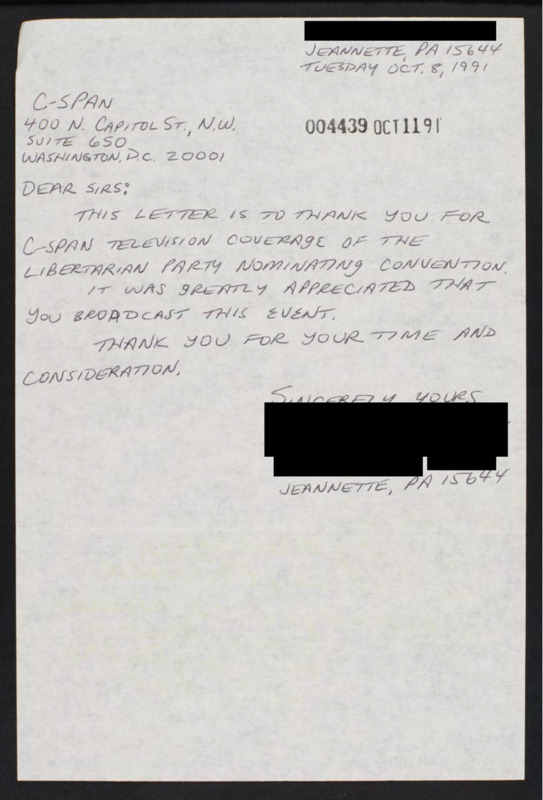 JEANNETTE, PA 15644
TUESDAY OCT. 8, 1991
C-SPAN
400 N. CAPITOL ST., N.W.
SUITE 650
WASHINGTON, D.C. 20001
004439 OCT1191
DEAR SIRS:
THIS LETTER IS TO THANK YOU FOR
C-SPAN TELEVISION COVERAGE OF THE
LIBERTARIAN PARTY NOMINATING CONVENTION.
IT WAS GREATLY APPRECIATED THAT
YOU BROADCAST THIS EVENT.
THANK YOU FOR YOUR TIME AND
CONSIDERATION.
SINCERELY YOURS
JEANNETTE, PA 15644